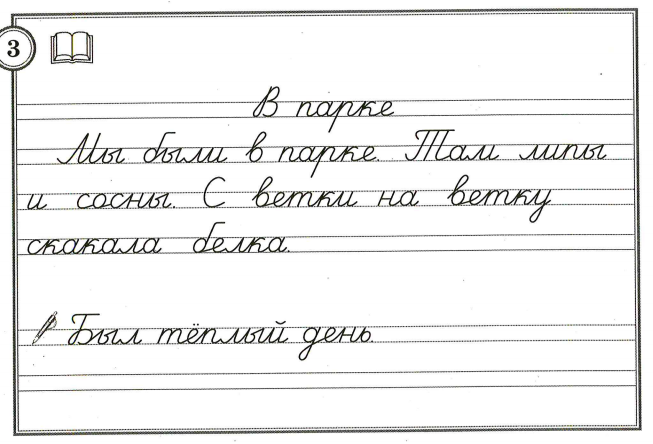 3
В парке
Мы были в парке. Там липы
и сосны. С ветки на ветку
скакала белка.
Был тёплый день